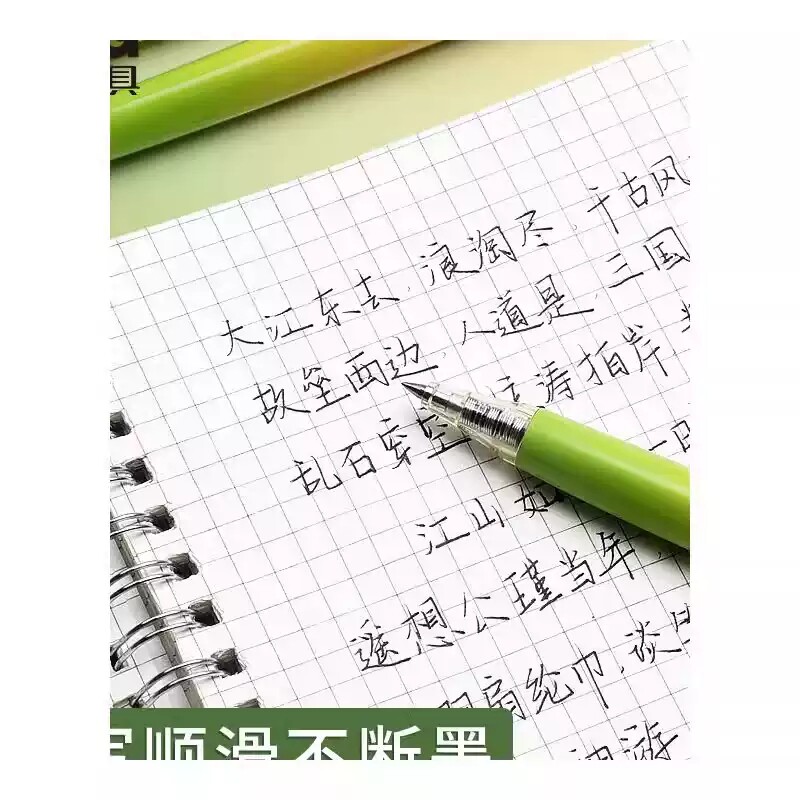 具
大江东去,浪淘尽,千古风
故垒西边,人道是,三国
乱石穿空 涛拍岸
江山如
遥想公瑾当年,
扇纶巾,谈
游
顺滑不断墨